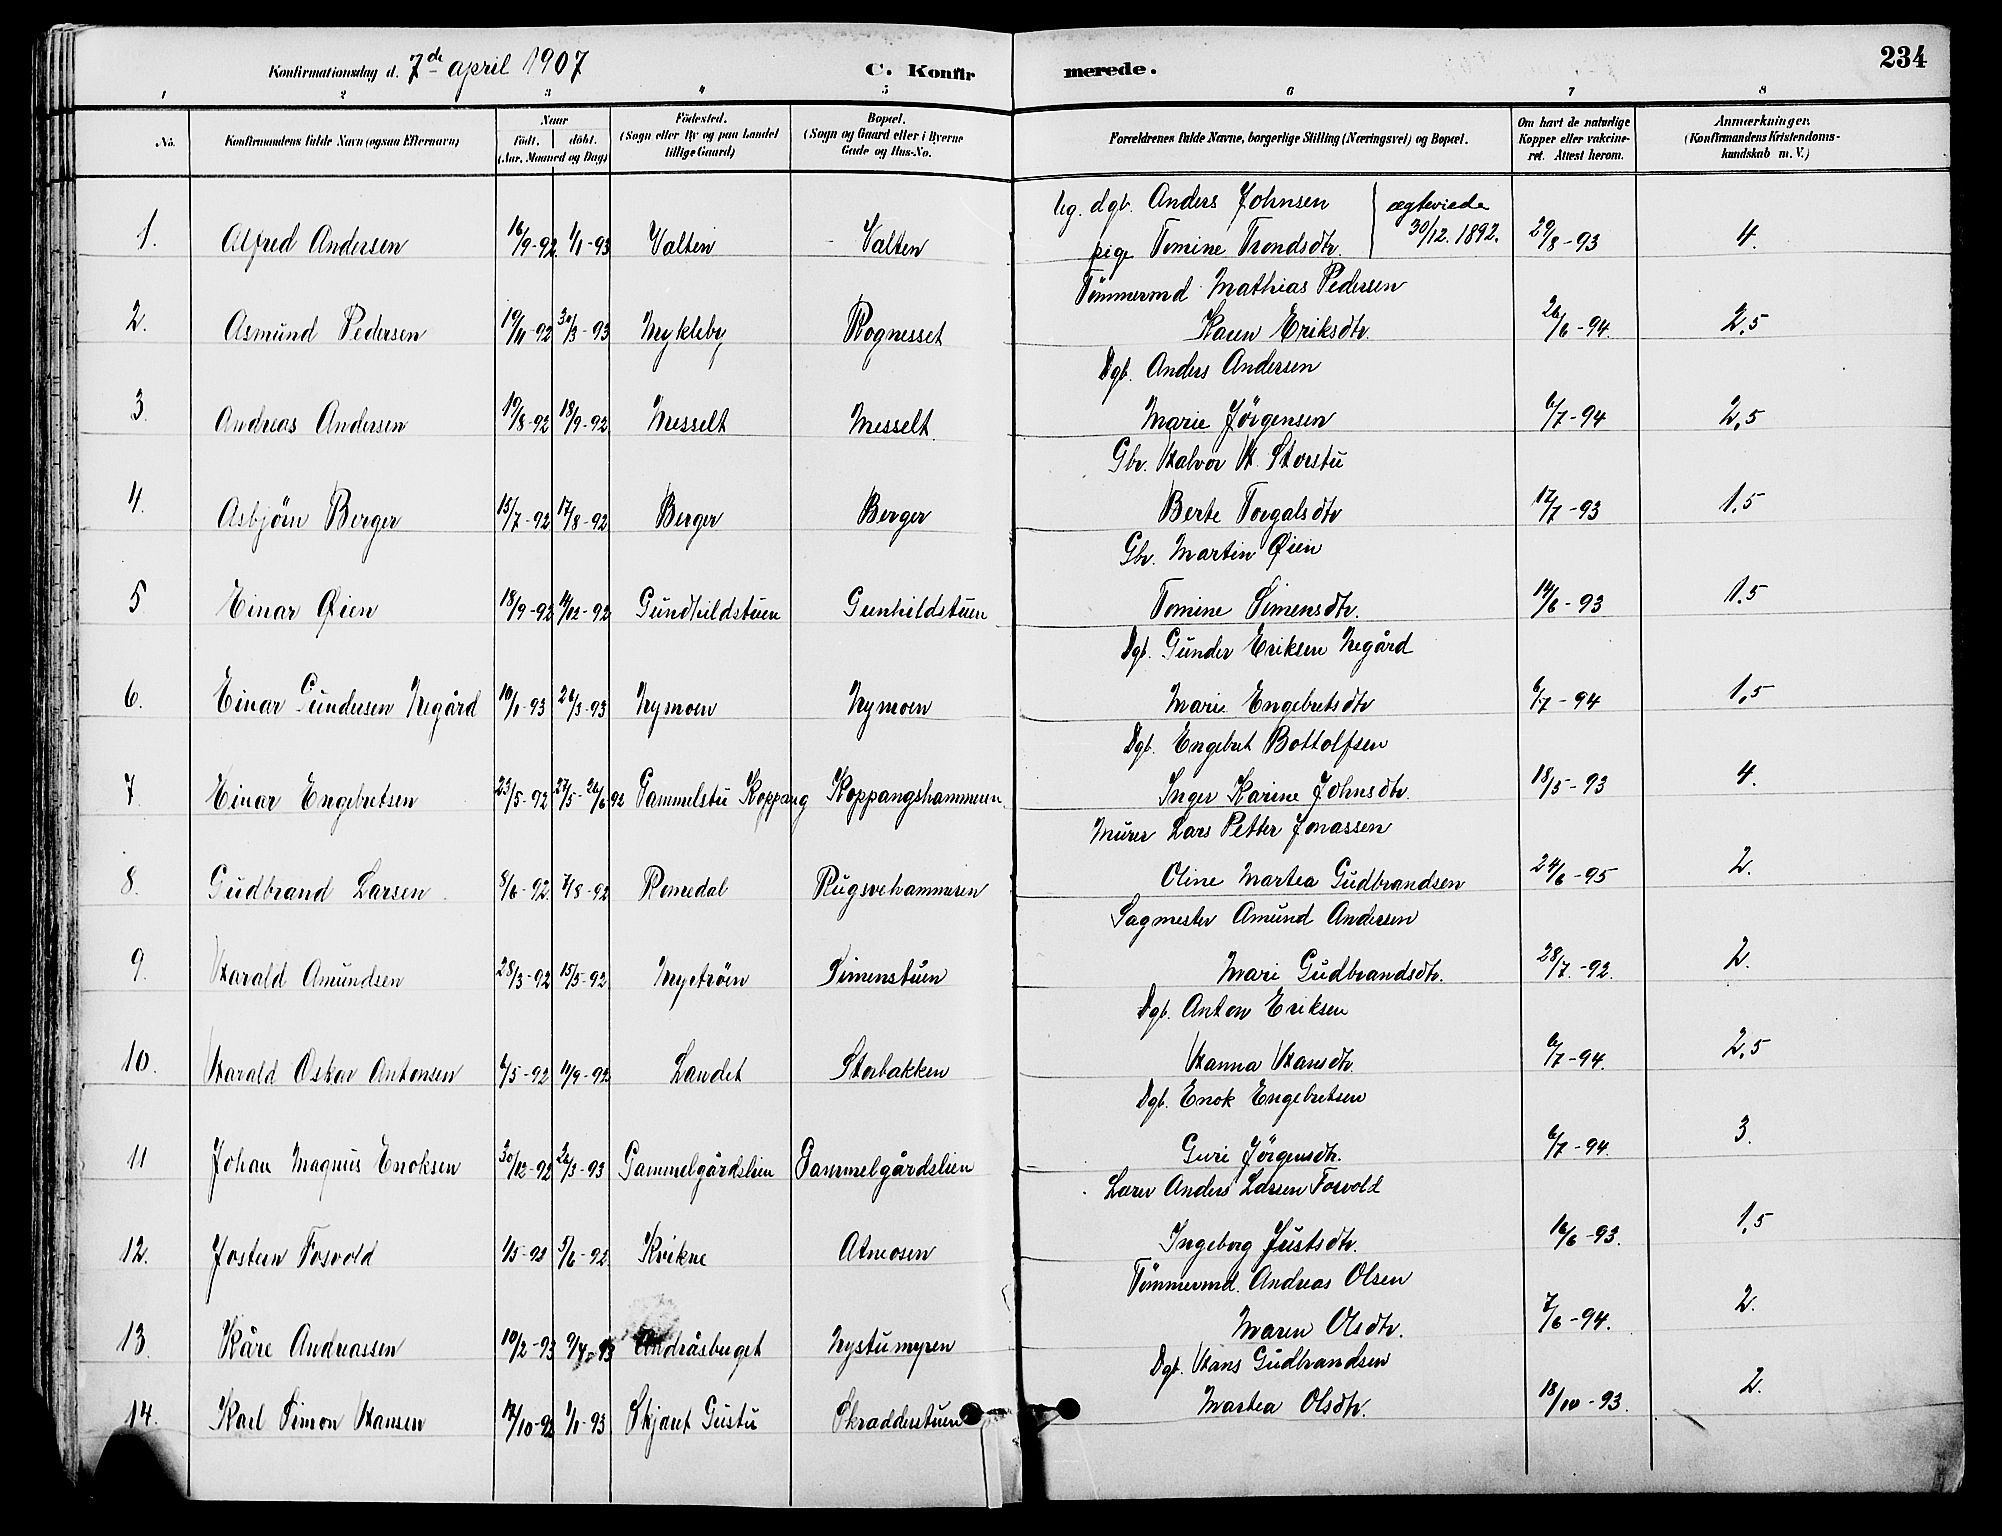 Konfirmationsdag d. 7de april 1907 C. Konfirmerede. 234
1 2 3 4 5 6 7 8
No. Konfirmandens fulde Navn (ogsaa Efternavn) Naar født. døbt. (Aar, Maaned og Dag) Fødested. (Sogn eller By og paa Landet tillige Gaard) Bopæl. (Sogn og Gaard eller i Byerne Gade og Hus-No. Forældrenes fulde Navne, borgerlige Stilling (Næringsvei) og Bopæl. Om havt de naturlige Kopper eller vakcineret. Attest herom. Anmærkninger. (Konfirmandens Kristendomskundskab m. V.)
Ug. dgb. Anders Johnsen ægteviede
1. Alfred Andersen 16/9-92 1/1-93 Valten Valten pige Tomine Trondsdtr. 30/12. 1892. 29/8-93 4.
Tömmermd Mathias Pedersen
2. Asmund Pedersen 19/11-92 30/3-93 Nykleby Rognesset Karen Eriksdtr. 26/6-94. 2,5
Dgb. Anders Andersen
3. Andreas Andersen 19/8-92 18/9-92 Messelt Messelt. Marie Jörgensen 6/7-94 2,5
Gbr. Halvor H. Storstu
4. Asbjörn Berger 15/7-92 17/8-92 Berger Berger Berte Torgalsdtr 17/7-93 1,5
Gbr. Martin Øien
5 Einar Øien 18/9-92 14/12-92 Gundhildstuen Gunhildstuen Tomine Simensdtr. 14/6-93 1,5
Dgb. Gunder Eriksen Negård
6. Einar Gundersen Negård 10/1-93 26/3-93 Nymoen Nymoen Mari Engebretsdtr 6/7-94 1,5
Dgb. Engebret Bottolfsen
7 Einar Engebretsen 23/5-92 27/5-26/6 92 Gammelstu Koppang Koppangshammeren Inger Karine Johnsdtr. 18/5-93 4.
Murer Lars Petter Jonassen
8. Gudbrand Larsen 8/6-92. 7/8-92 Romedal Rugsvehammeren Oline Martea Gudbrandsen 24/6-95 2.
Sagmester Amund Andersen
9. Harald Amundsen 28/3-92 15/5-92 Nytröen Simenstuen Mari Gudbrandsdtr. 28/7.-92. 2.
Dgb. Anton Eriksen
10. Harald Oskar Antonsen 4/5-92 11/9-92 Landet Storbakken Hanna Hansdtr. 6/7-94. 2,5
Dgb. Enok Engebretsen
11 Johan Magnus Enoksen 30/12-92 26/3-93 Gammelgårdslien Gammelgårdslien Guri Jörgensdtr. 6/7-94. 3.
Lærer Anders Larsen Fosvold
12. Jostein Fosvold 1/5-92 5/6-92 Kvikne Atneosen Ingeborg Justsdtr. 16/6-93. 1,5
Tömmermd. Andreas Olsen
13. Kåre Andreassen 10/2-93 9/4-93 Andråsberget Nystumyren Maren Olsdtr. 7/6-94. 2.
Dgb. Hans Gudbrandsen
14. Karl Simon Hansen 17/10-92 1/1-93 Skjæret Gustu Skradderstuen Martea Olsdtr. 18/10-93. 2.